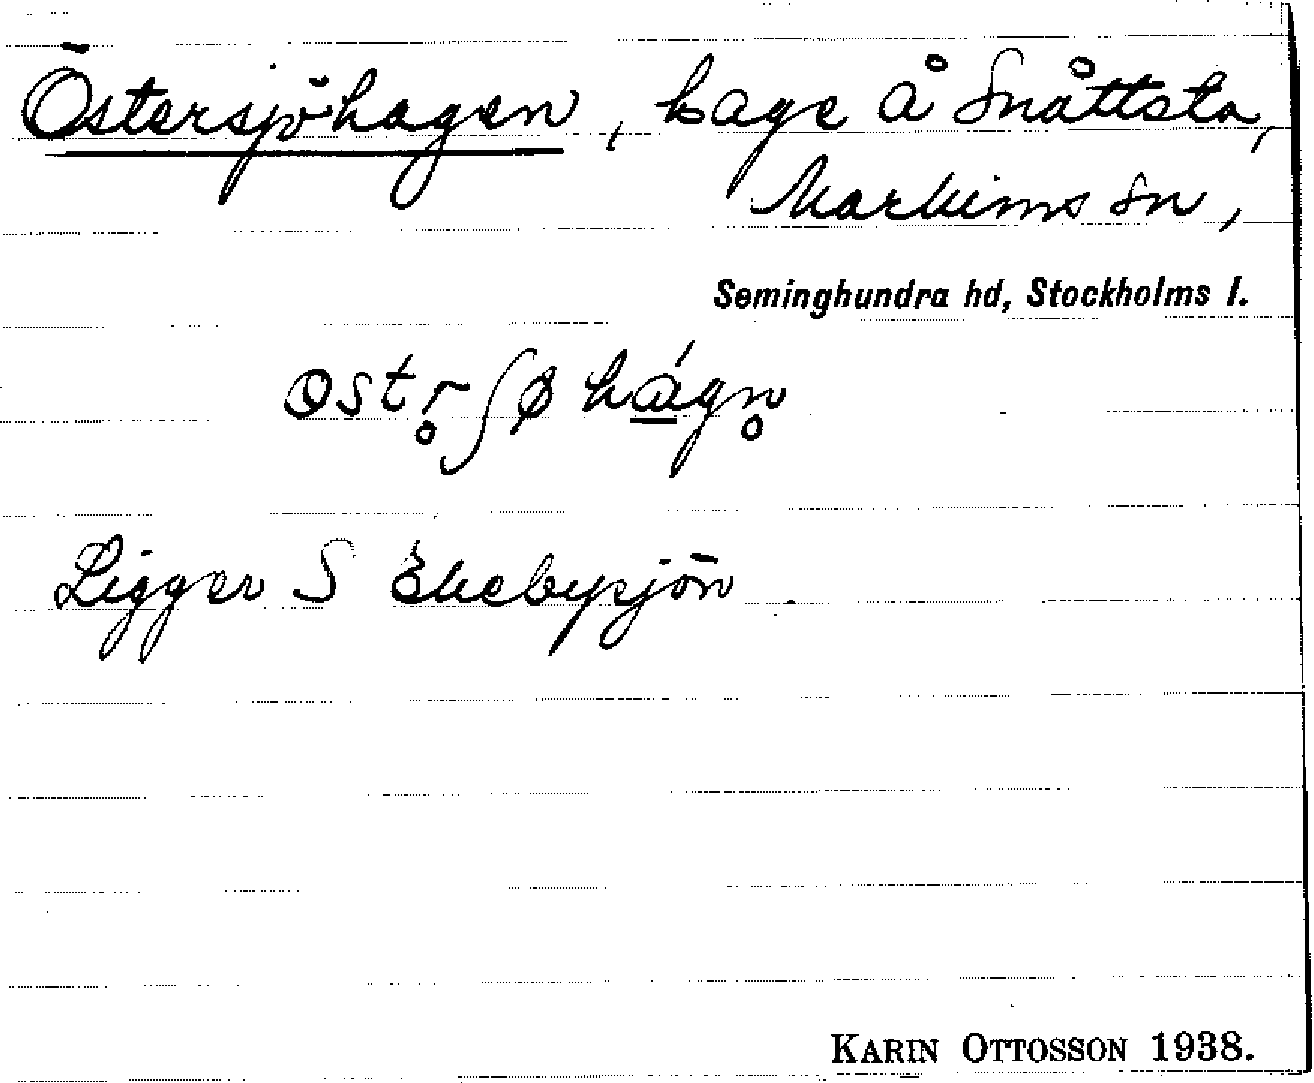 Östersjöhagen, hage å Snåttsta,
Markims sn,
Seminghundra hd, Stockholms l.
Ligger S Ekebysjön
KARIN OTTOSSON 1938.